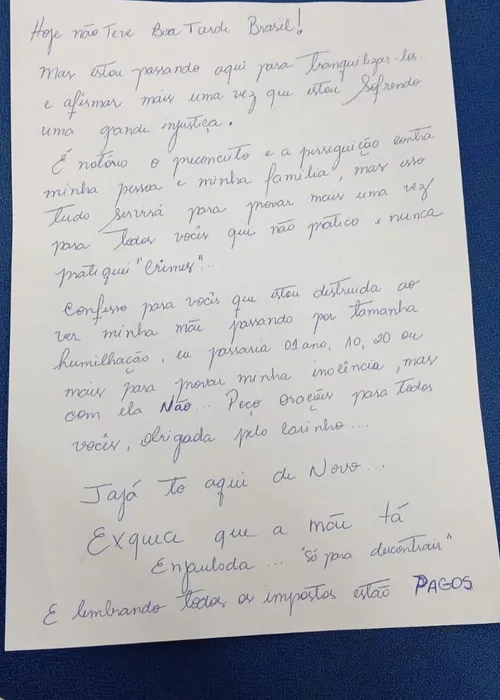 Hoje não Teve Boa Tarde Brasil!
Mas estou passando aqui para Tranquilizar-los
e afirmar mais uma vez que estou Sofrendo
uma grande injustiça.
É notório o preconceito e a perseguição contra
minha pessoa e minha família, mas isso
tudo servirá para provar mais uma vez
para todos vocês que não pratico e nunca
pratiquei "Crimes"..
Confesso para vocês que estou distruida ao
ver minha mãe passando por tamanha
humilhação, eu passaria 01 ano, 10, 20 ou
mais para provar minha inocência, mas
com ela Não... Peço orações para todos
vocês, obrigada pelo carinho...
Jajá to aqui de Novo...
Exquece que a mãe tá
Enjaulada... "só para descontrair"
E lembrando todos os impostos estão PAGOS